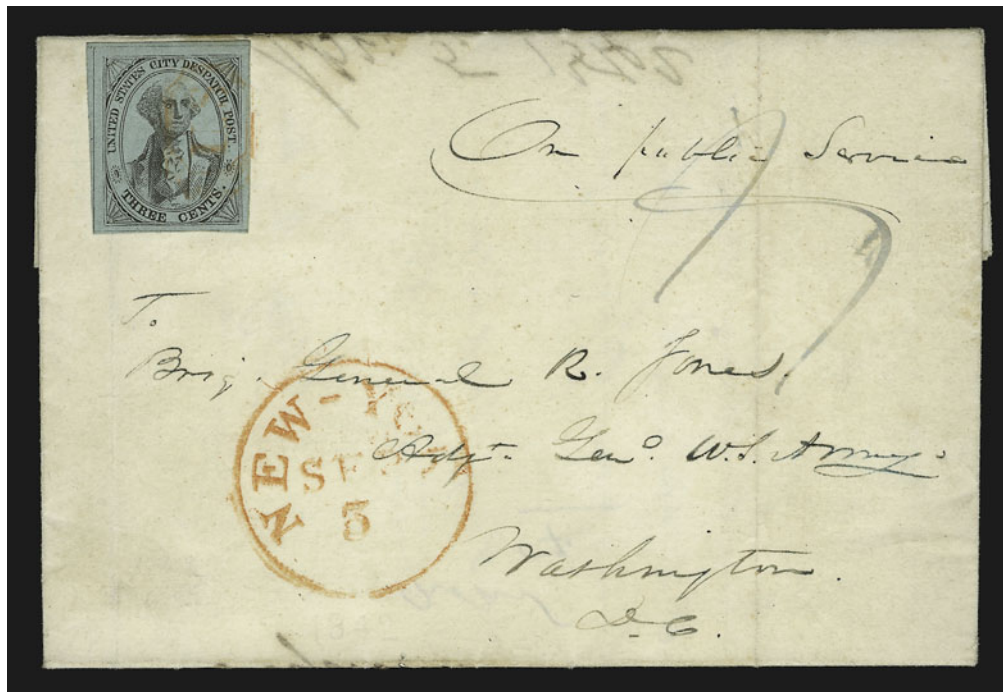 UNITED STATES CITY DESPATCH POST.
THREE CENTS.
On public Service
To
Brig. General R. Jones.
Adjt. Genl. U.S. Army.
Washington.
D.C.
NEW-YO
SEP
5